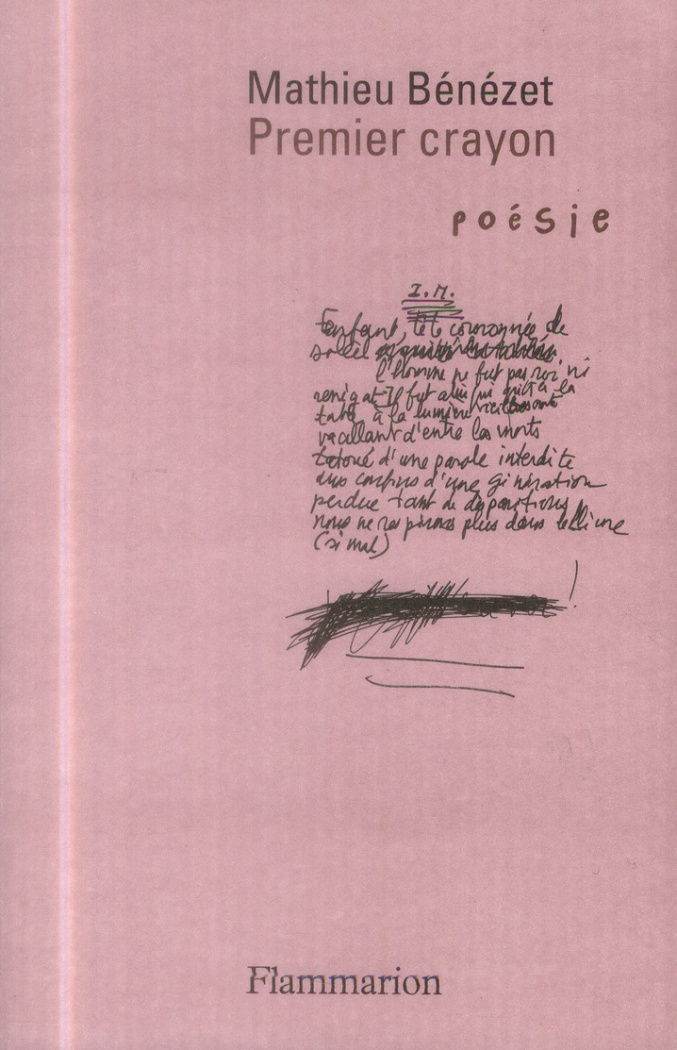 Mathieu Bénézet
Premier crayon
poésie
I.M.
Enfant, tête couronnée de
soleil
l'homme ne fut pas roi, ni
renégat Il fut
table à la lumière
vacillant d'entre les morts
tatoué d'une parole interdite
des corps d'une génération
perdue tant de disparitions
nous ne respirons plus dans le livre
(si mal)
Flammarion